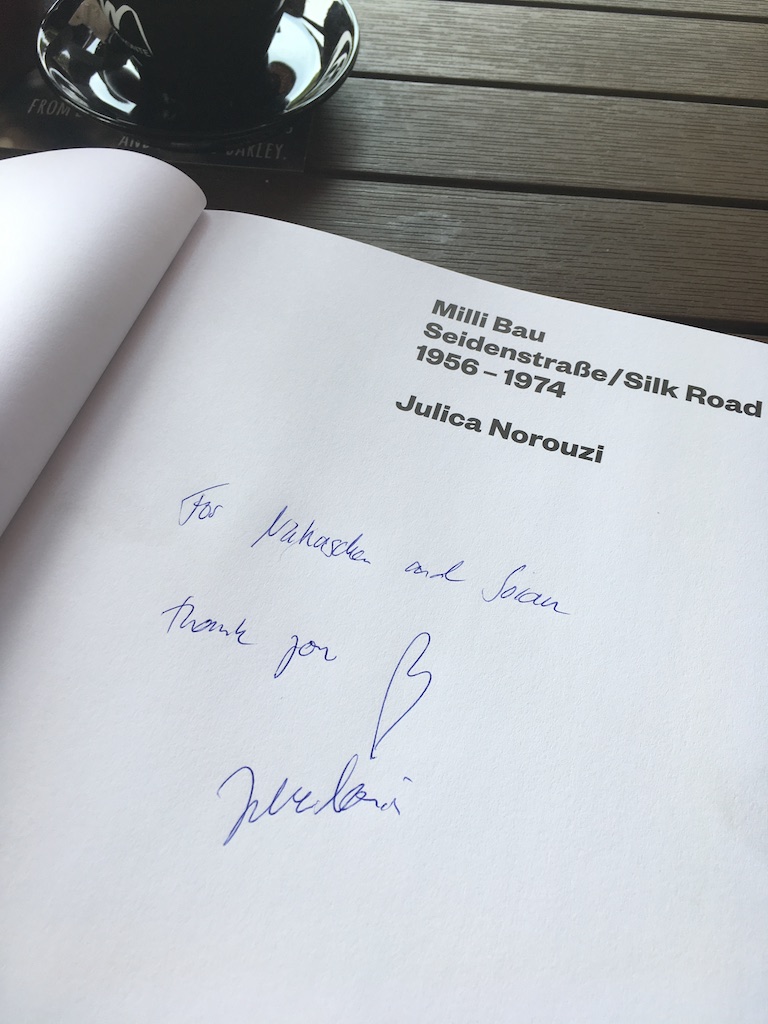 FROM
AND OAKLEY.
Milli Bau
Seidenstraße/Silk Road
1956 – 1974
Julica Norouzi
For and Soran
Thank you